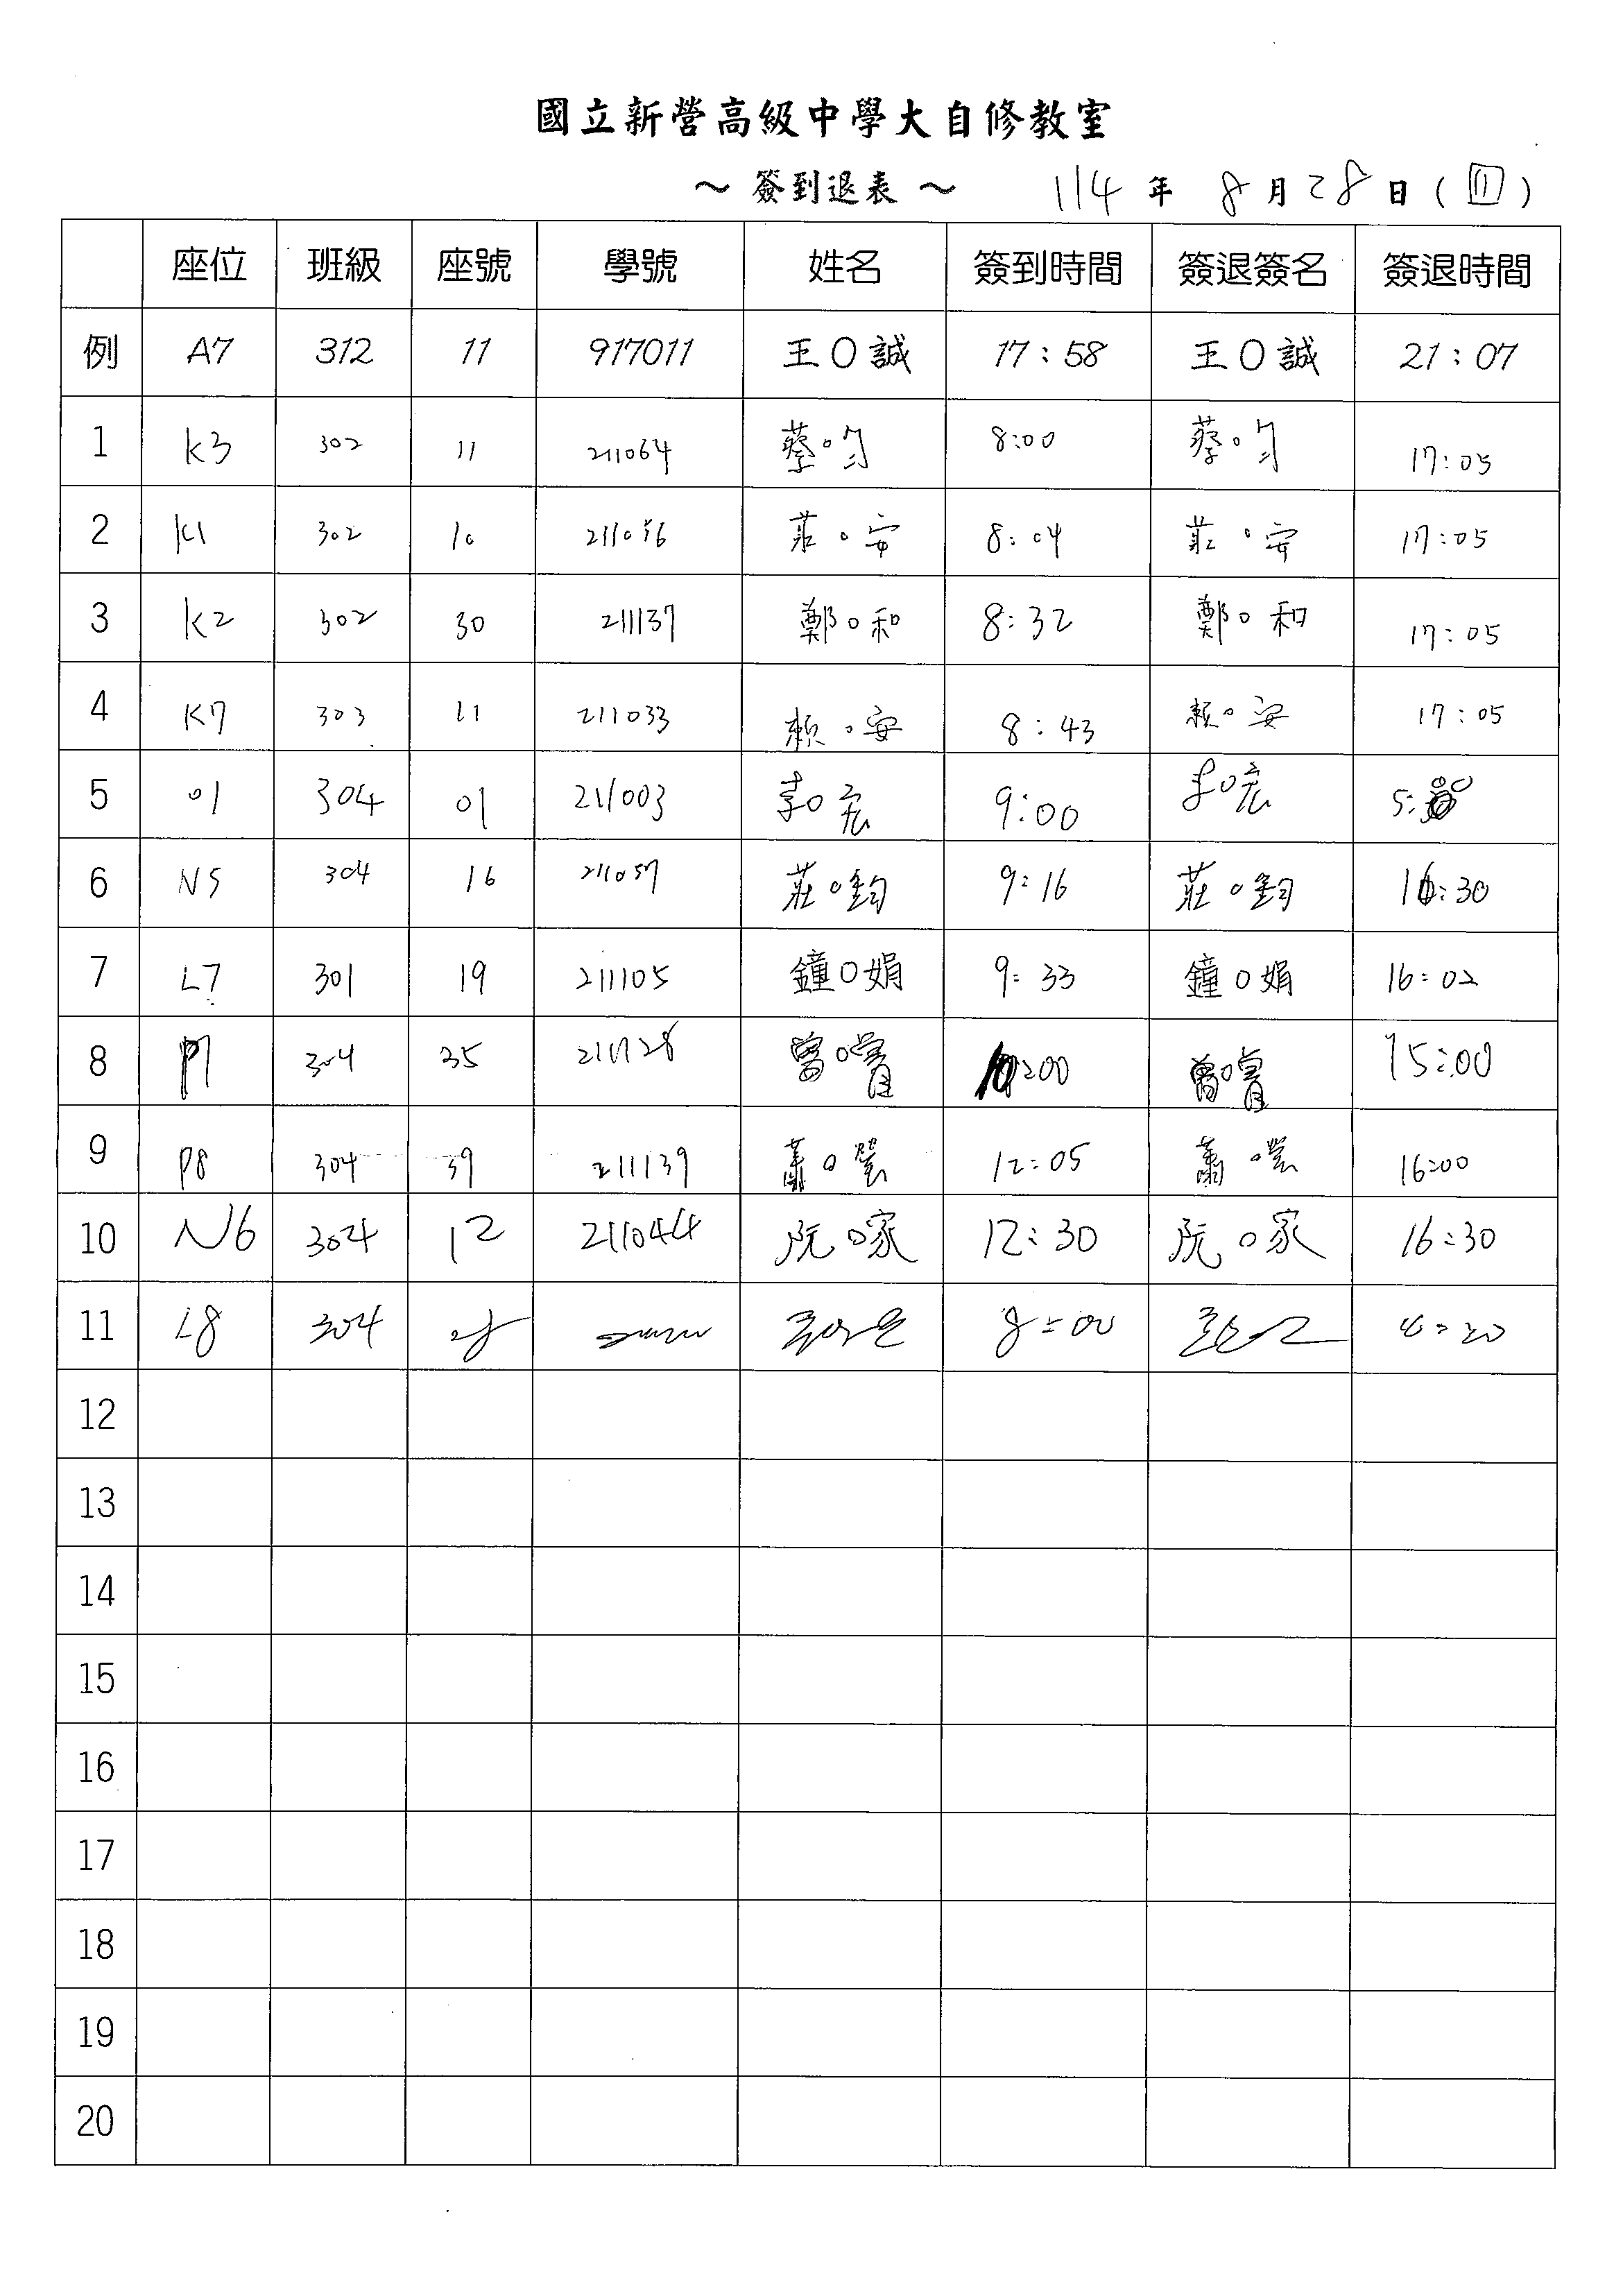 國立新營高級中學大自修教室
～ 簽到退表 ～ 114 年 8 月 28 日 ( 四 )
座位 班級 座號 學號 姓名 簽到時間 簽退簽名 簽退時間
例 A7 312 11 917011 王O誠 17:58 王O誠 21:07
1 K3 302 11 211064 蔡O勻 8:00 蔡O勻 17:05
2 K1 302 10 211056 莊O安 8:04 莊O安 17:05
3 K2 302 30 211137 鄭O和 8:32 鄭O和 17:05
4 K7 303 11 211033 賴O安 8:43 賴O安 17:05
5 01 304 01 211003 李O宏 9:00 李O宏
6 N5 304 16 211057 莊O鈞 9:16 莊O鈞 16:30
7 L7 301 19 211105 鐘O娟 9:33 鐘O娟 16:02
8 304 35 211128 曾O 10:00 曾O 15:00
9 P8 304 39 211139 蕭O 12:05 蕭O 16:00
10 N6 304 12 211044 阮O家 12:30 阮O家 16:30
11 L8 304 8:00
12
13
14
15
16
17
18
19
20